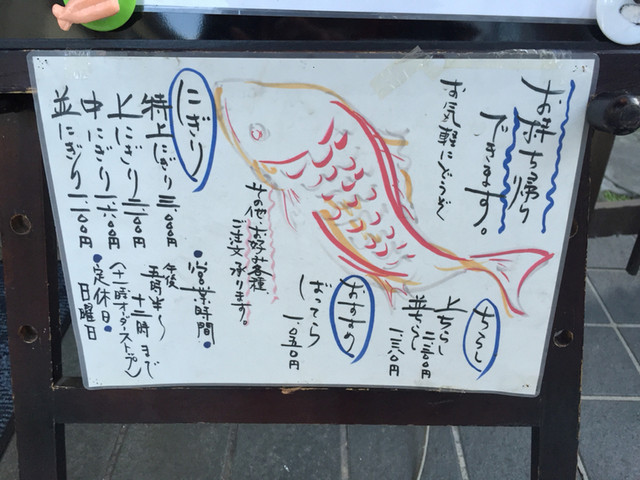 お持ち帰り
できます。
お気軽にどうぞ
ちらし
上ちらし
並ちらし
おすすめ
ばってら 一.〇五〇円
その他、お好み各種
ご注文承ります。
にぎり
特上にぎり 三.〇〇〇円
上にぎり
中にぎり 一.六〇〇円
並にぎり
・営業時間・
午後
五時半〜十二時まで
(十一時オーダーストップ)
・定休日・
日曜日